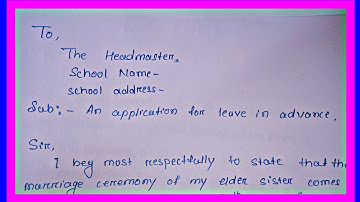 To,
The Headmaster,
School Name-
school address-
Sub:- An application for leave in advance.
Sir,
I beg most respectfully to state that the
marriage ceremony of my elder sister comes